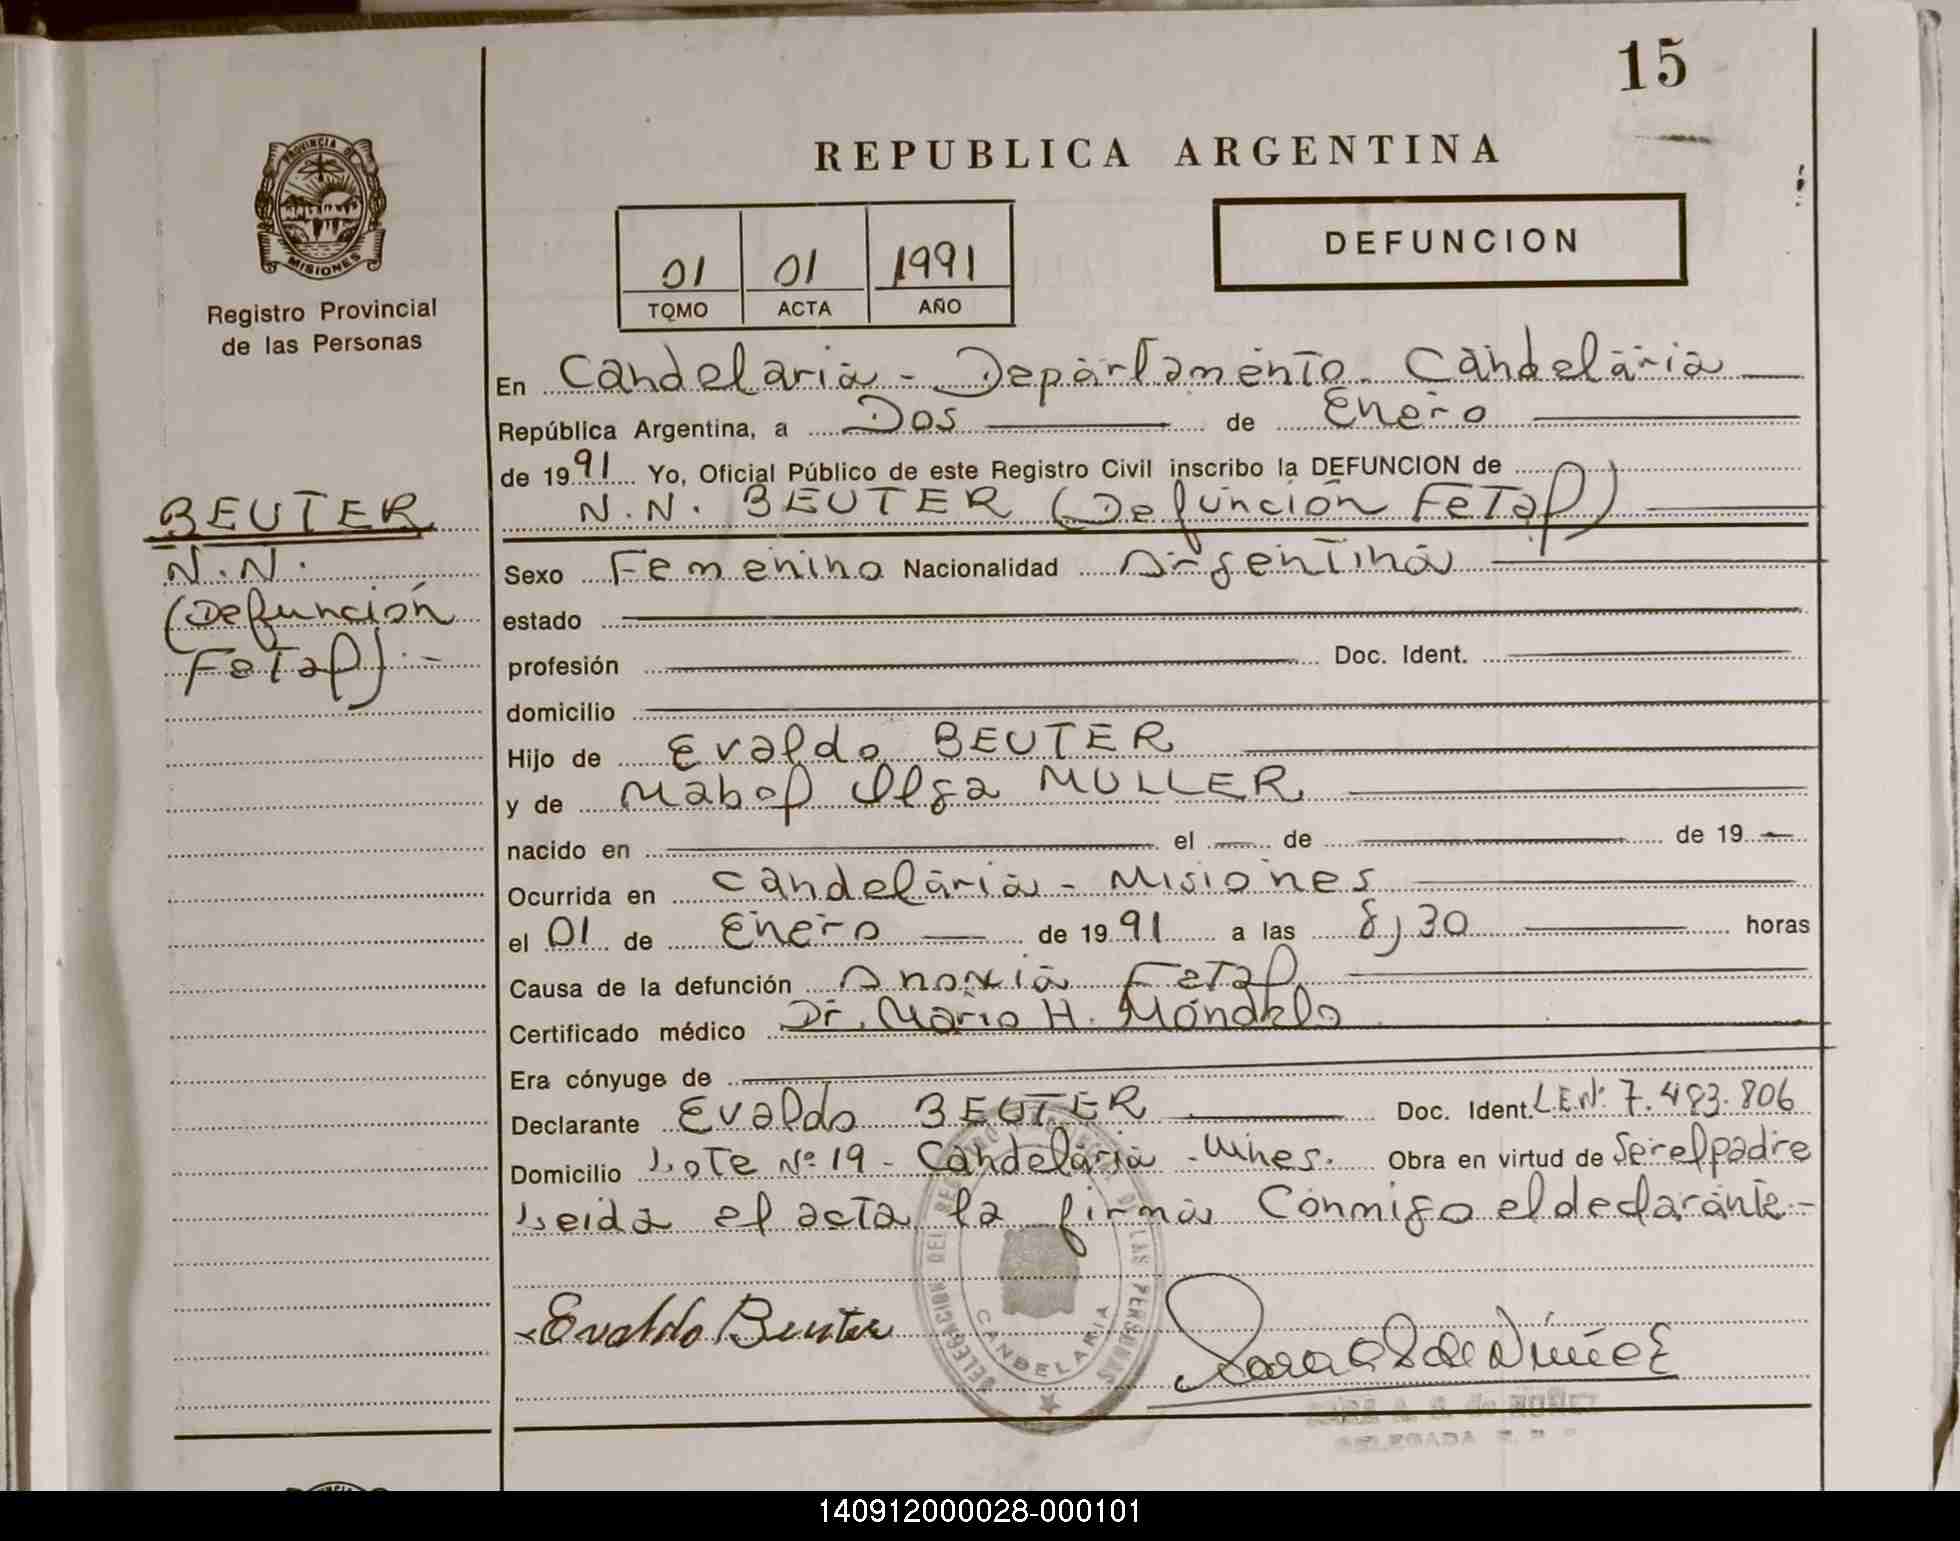 15
PROVINCIA DE
MISIONES
Registro Provincial
de las Personas
REPUBLICA ARGENTINA
01 01 1991
TOMO ACTA AÑO
DEFUNCION
BEUTER
N.N.
(Defunción
Fetal).-
En Candelaria - Departamento Candelaria
República Argentina, a Dos de Enero
de 1991 Yo, Oficial Público de este Registro Civil inscribo la DEFUNCION de
N.N. BEUTER (Defunción Fetal)
Sexo Femenino Nacionalidad Argentina
estado
profesión Doc. Ident.
domicilio
Hijo de Evaldo BEUTER
y de Mabel Olga MULLER
nacido en el de de 19
Ocurrida en Candelaria - Misiones
el 01 de Enero de 1991 a las 8,30 horas
Causa de la defunción Anoxia Fetal
Certificado médico Dr. Mario H.
Era cónyuge de
Declarante Evaldo BEUTER Doc. Ident. L.E.Nº 7.483.806
Domicilio Lote Nº 19 - Candelaria - Mnes. Obra en virtud de Ser el padre
Leida el acta la firma Conmigo el declarante.-
Evaldo Beuter
DELEGACION DEL REGISTRO DE LAS PERSONAS
CANDELARIA
140912000028-000101